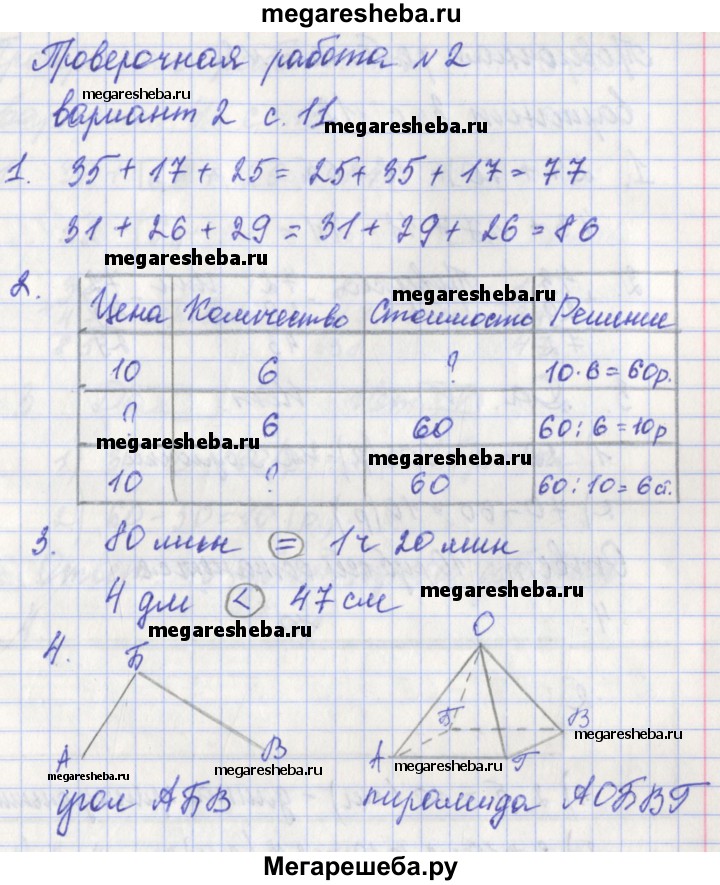 megaresheba.ru
Проверочная работа №2
megaresheba.ru
вариант 2 с. 11
megaresheba.ru
1. 35 + 17 + 25 = 25 + 35 + 17 = 77
31 + 26 + 29 = 31 + 29 + 26 = 86
megaresheba.ru
2.
megaresheba.ru
Цена Количество Стоимость Решение
10 6 ? 10·6=60р.
? 6 60 60:6=10р
megaresheba.ru
megaresheba.ru
10 ? 60 60:10=6
3. 80 мин = 1ч 20 мин
4 дм < 47 см
megaresheba.ru
megaresheba.ru
4.
Б
О
А
В
А
Б
В
Г
megaresheba.ru
megaresheba.ru
megaresheba.ru
megaresheba.ru
угол АБВ
пирамида АОБВГ
Мегарешеба.ру